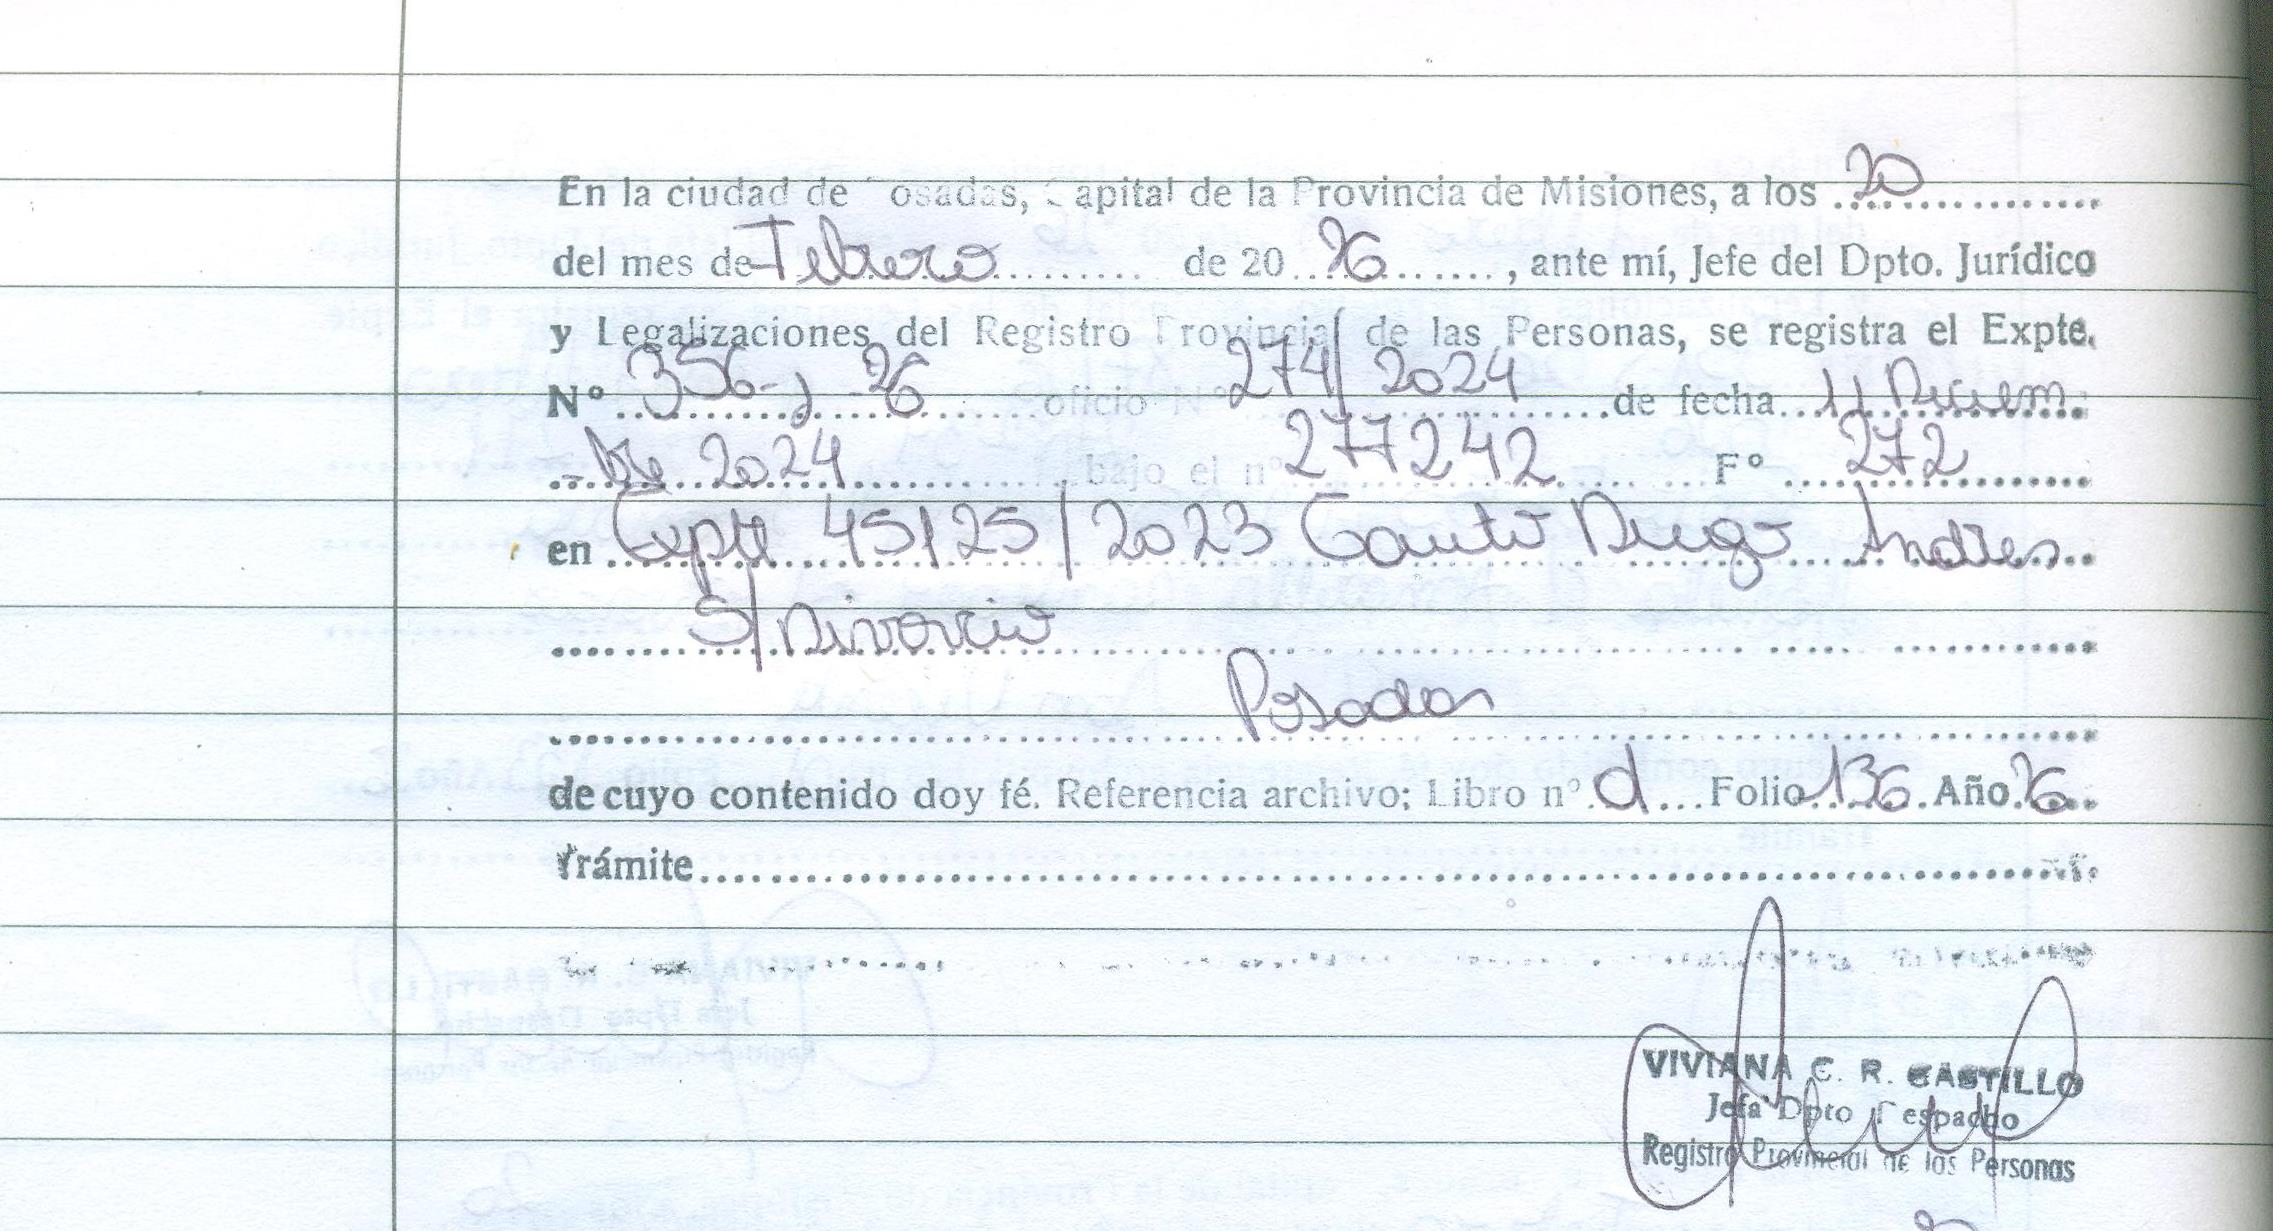 En la ciudad de Posadas, Capital de la Provincia de Misiones, a los 20
del mes de Febrero de 20 26, ante mí, Jefe del Dpto. Jurídico
y Legalizaciones del Registro Provincial de las Personas, se registra el Expte.
Nº 356-J-26 oficio Nº 274/2024 de fecha 11 Diciem
-bre 2024 bajo el nº 277242 Fº 272
en Expte 45125/2023 Gauto Diego Andres
S/Divorcio
Posadas
de cuyo contenido doy fé. Referencia archivo; Libro nº d Folio 136 Año 26
Trámite
VIVIANA C. R. CASTILLO
Jefa Dpto Despacho
Registro Provincial de las Personas